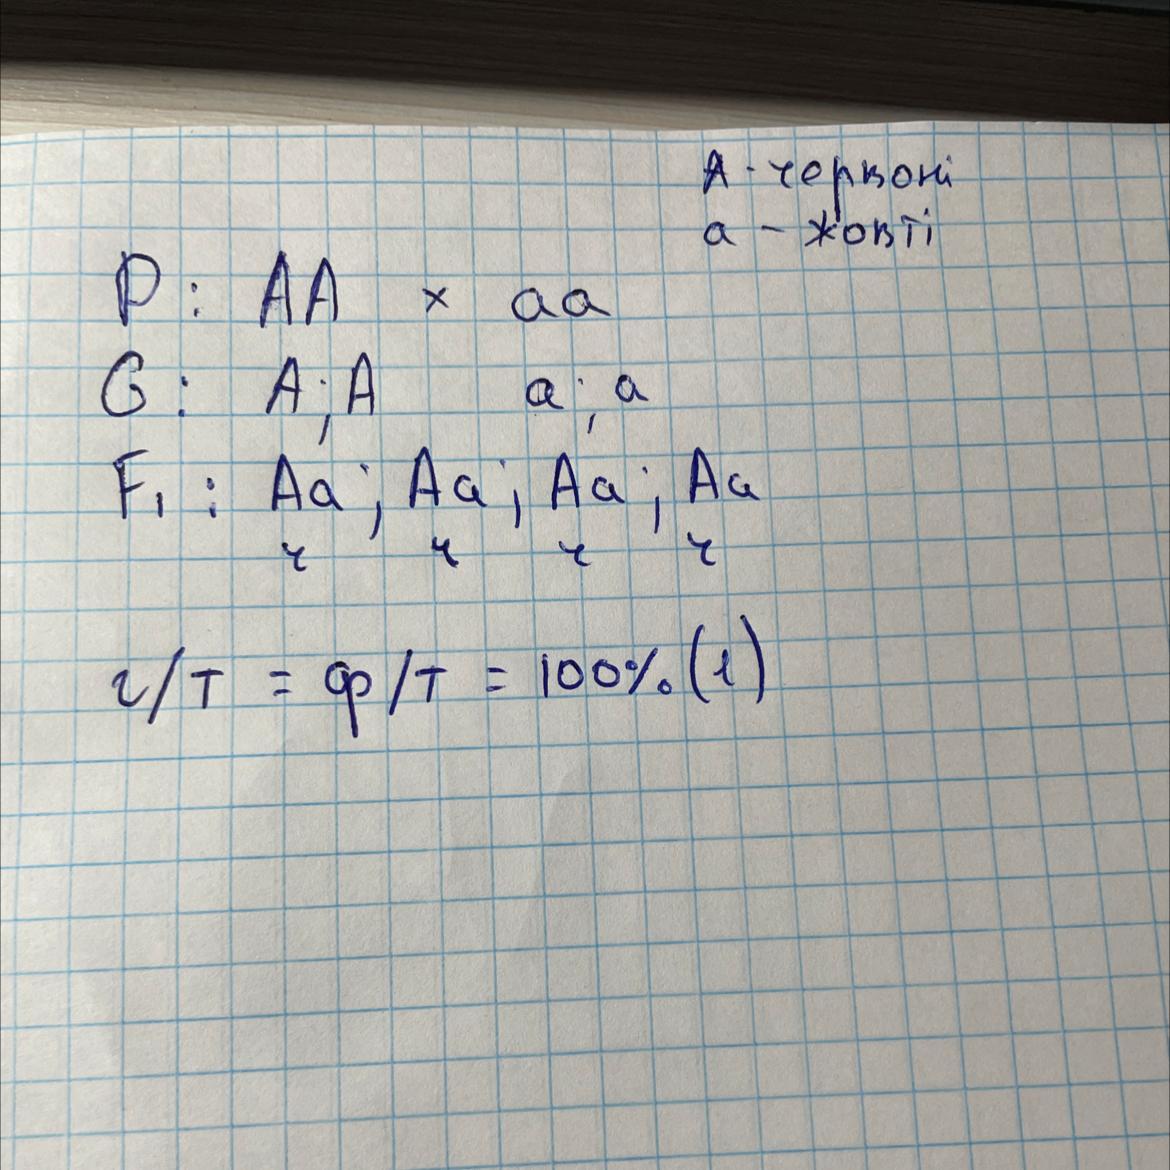 А - червоні
а - жовті
P: AA × aa
G: A; A a; a
F₁: Aa; Aa; Aa; Aa
ч ч ч ч
г/т = ф/т = 100% (1)